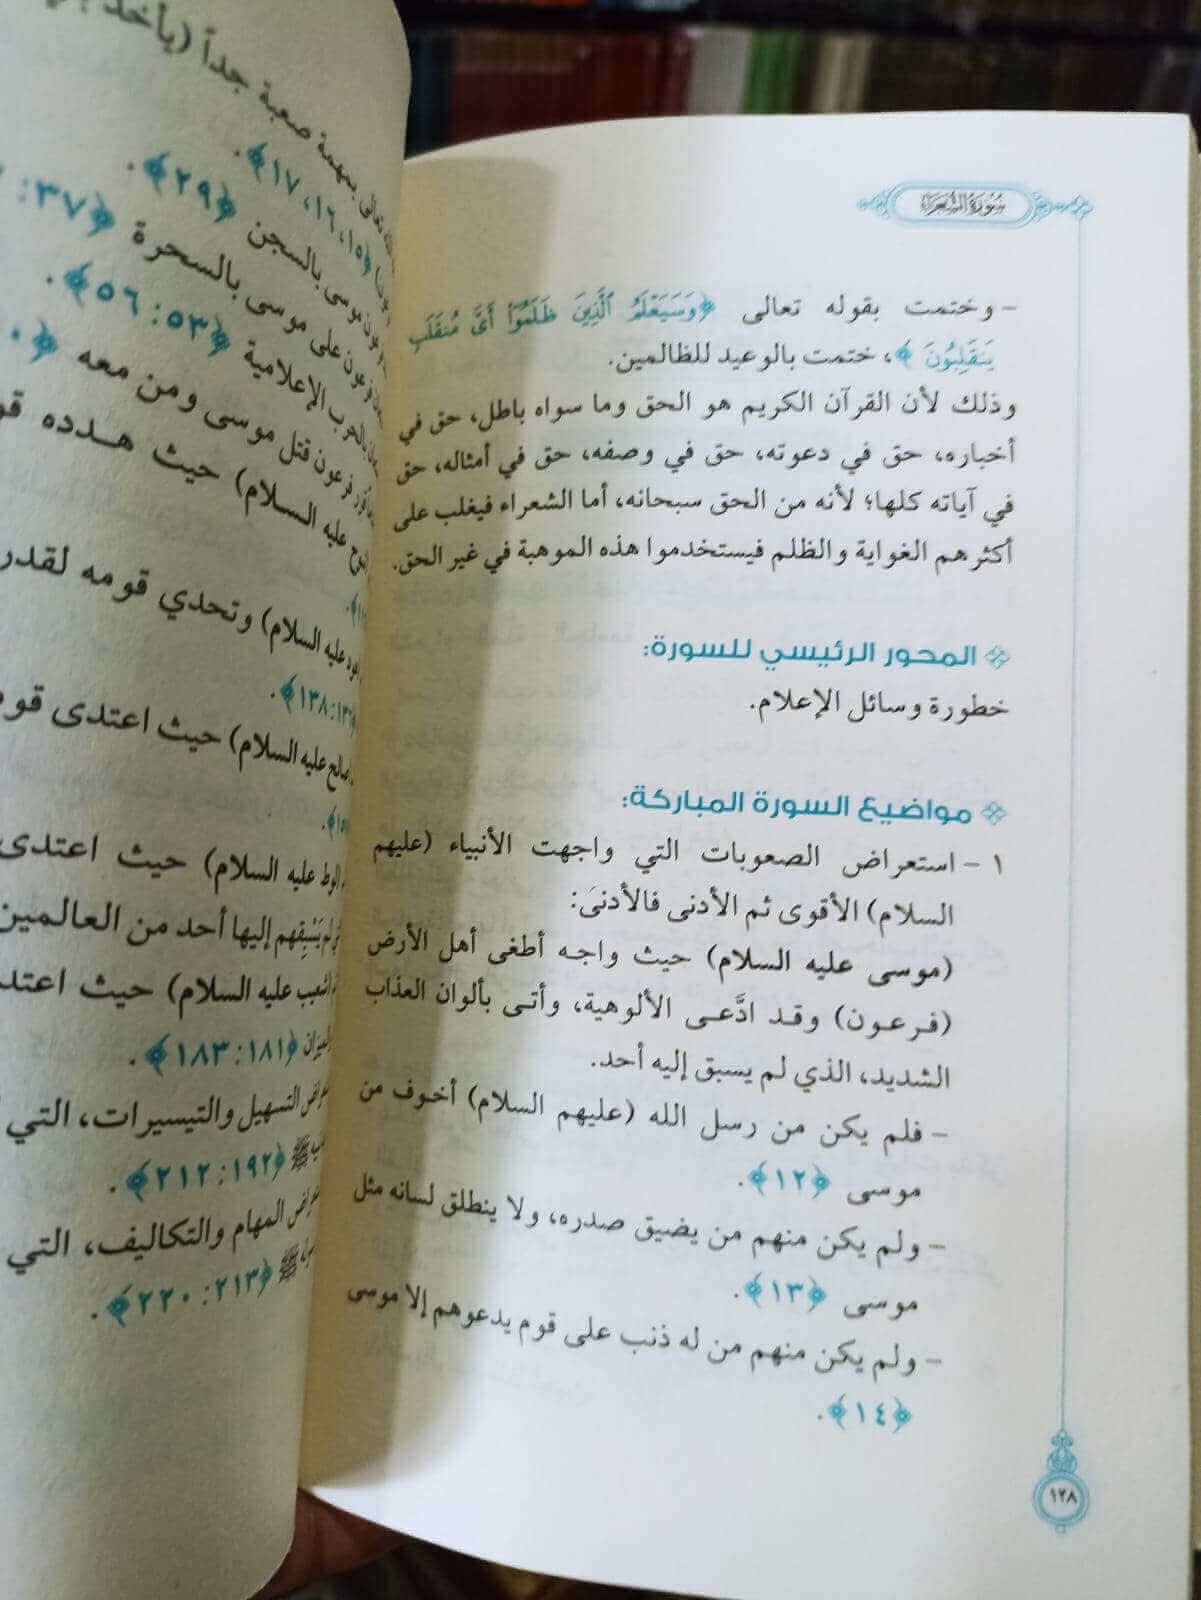 سورة الشعراء
- وختمت بقوله تعالى ﴿وَسَيَعْلَمُ ٱلَّذِينَ ظَلَمُوٓا۟ أَىَّ مُنقَلَبٍ
يَنقَلِبُونَ﴾، ختمت بالوعيد للظالمين.
وذلك لأن القرآن الكريم هو الحق وما سواه باطل، حق في
أخباره، حق في دعوته، حق في وصفه، حق في أمثاله، حق
في آياته كلها؛ لأنه من الحق سبحانه، أما الشعراء فيغلب على
أكثرهم الغواية والظلم فيستخدموا هذه الموهبة في غير الحق.
المحور الرئيسي للسورة:
خطورة وسائل الإعلام.
مواضيع السورة المباركة:
١ - استعراض الصعوبات التي واجهت الأنبياء (عليهم
السلام) الأقوى ثم الأدنى فالأدنىَ:
(موسى عليه السلام) حيث واجه أطغى أهل الأرض
(فرعون) وقد ادَّعى الألوهية، وأتى بألوان العذاب
الشديد، الذي لم يسبق إليه أحد.
- فلم يكن من رسل الله (عليهم السلام) أخوف من
موسى ﴿١٢﴾.
- ولم يكن منهم من يضيق صدره، ولا ينطلق لسانه مثل
موسى ﴿١٣﴾.
- ولم يكن منهم من له ذنب على قوم يدعوهم إلا موسى
﴿١٤﴾.
١٢٨
تعالى بمهمة صعبة جداً (يأخذ
﴿١٥، ١٦، ١٧﴾.
موسى بالسجن ﴿٢٩﴾.
فرعون على موسى بالسحرة ﴿٣٧:
بالحرب الإعلامية ﴿٥٣: ٥٦﴾.
فرعون قتل موسى ومن معه ﴿
نوح عليه السلام) حيث هدده
هود عليه السلام) وتحدي قومه لقدر
١٣٨﴾.
صالح عليه السلام) حيث اعتدى
لوط عليه السلام) حيث اعتدى
لم يَسْبِقهم إليها أحد من العالمين
شعيب عليه السلام) حيث اعتد
الميزان ﴿١٨١: ١٨٣﴾.
التسهيل والتيسيرات، التي
ﷺ ﴿١٩٢: ٢١٢﴾.
المهام والتكاليف، التي
ﷺ ﴿٢١٣: ٢٢٠﴾.